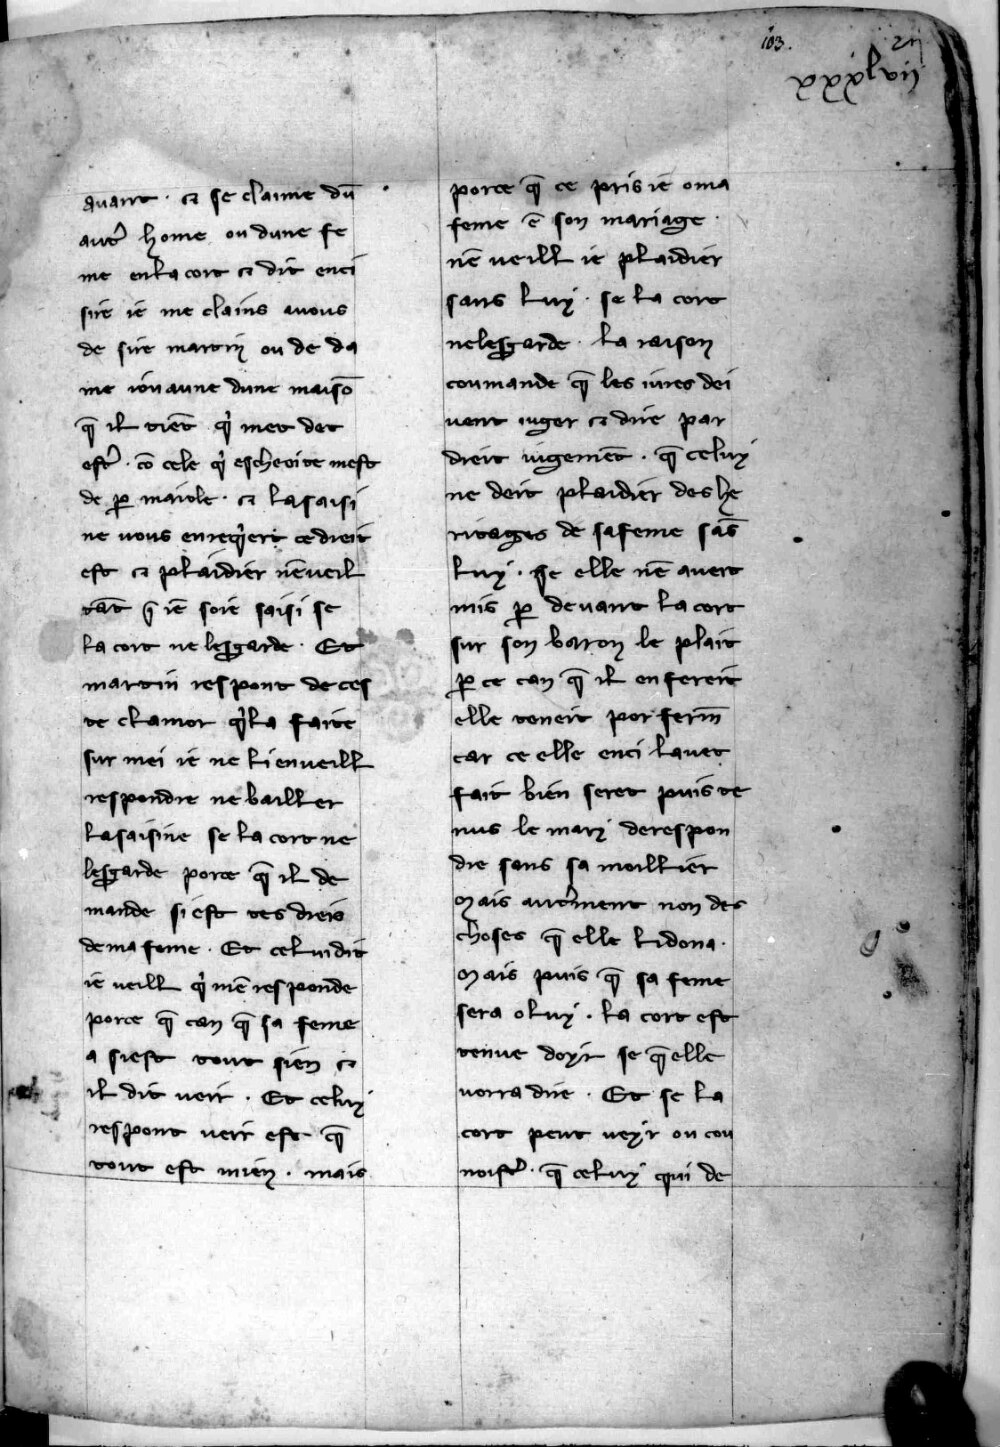 103.
xxxlvii
auant · ⁊ se claime dũ
aut᷑ home ou dune fe
me en la cort ⁊ dit enci
sire ie me clains auous
de sire martin ou de da
me iouanne dune maisõ
q̃ il tiẽt q̇ met det
est᷑ · cõ cele q̇ escheoite mest
de ꝑ maiole · ⁊ la saisi
ne uous enreq̇ert ce dreit
est ⁊ plaidier nẽ ueil
tãt q̃ iẽ soie saisi se
la cort ne lesgarde · Et
martin respont de ces
te clamor q̇la faite
sur mei ie ne li en ueill
respondre ne bailler
la saisine se la cort ne
lesgarde porce q̃ il de
mande si est tes dreis
de ma feme · Et celui dit
ie ueill q̇ mẽ responde
porce q̃ can q̃ sa feme
a si est tout sien ⁊
il dit ueir · Et celuy
respont ueir est q̃
tout est mien · mais
porce q̃ ce pris ie o ma
feme ẽ son mariage ·
nẽ ueill ie plaidier
sans luy · se la cort
ne lesgarde · la raison
coumande q̃ les iures dei
uent iuger ⁊ dire par
dreit iugemẽt · q̃ celuy
ne deit plaidier des he
ritages de sa feme sãs
luy · se elle nẽ auet
mis ꝑ deuant la cort
sur son baron le plait
ꝑ ce can q̃ il en fereit
elle teneit por ferm̃
car ce elle enci lauet
fait bien seret puis te
nus le mary de respon
dre sans sa moillier
Mais aut᷑ment non des
choses q̃ elle li dona ·
Mais puis q̃ sa feme
sera o luy · la cort est
tenue doyr se q̃ elle
uorra dire · Et se la
cort peut ueyr ou cou
noist᷑ · q̃ celuy qui de